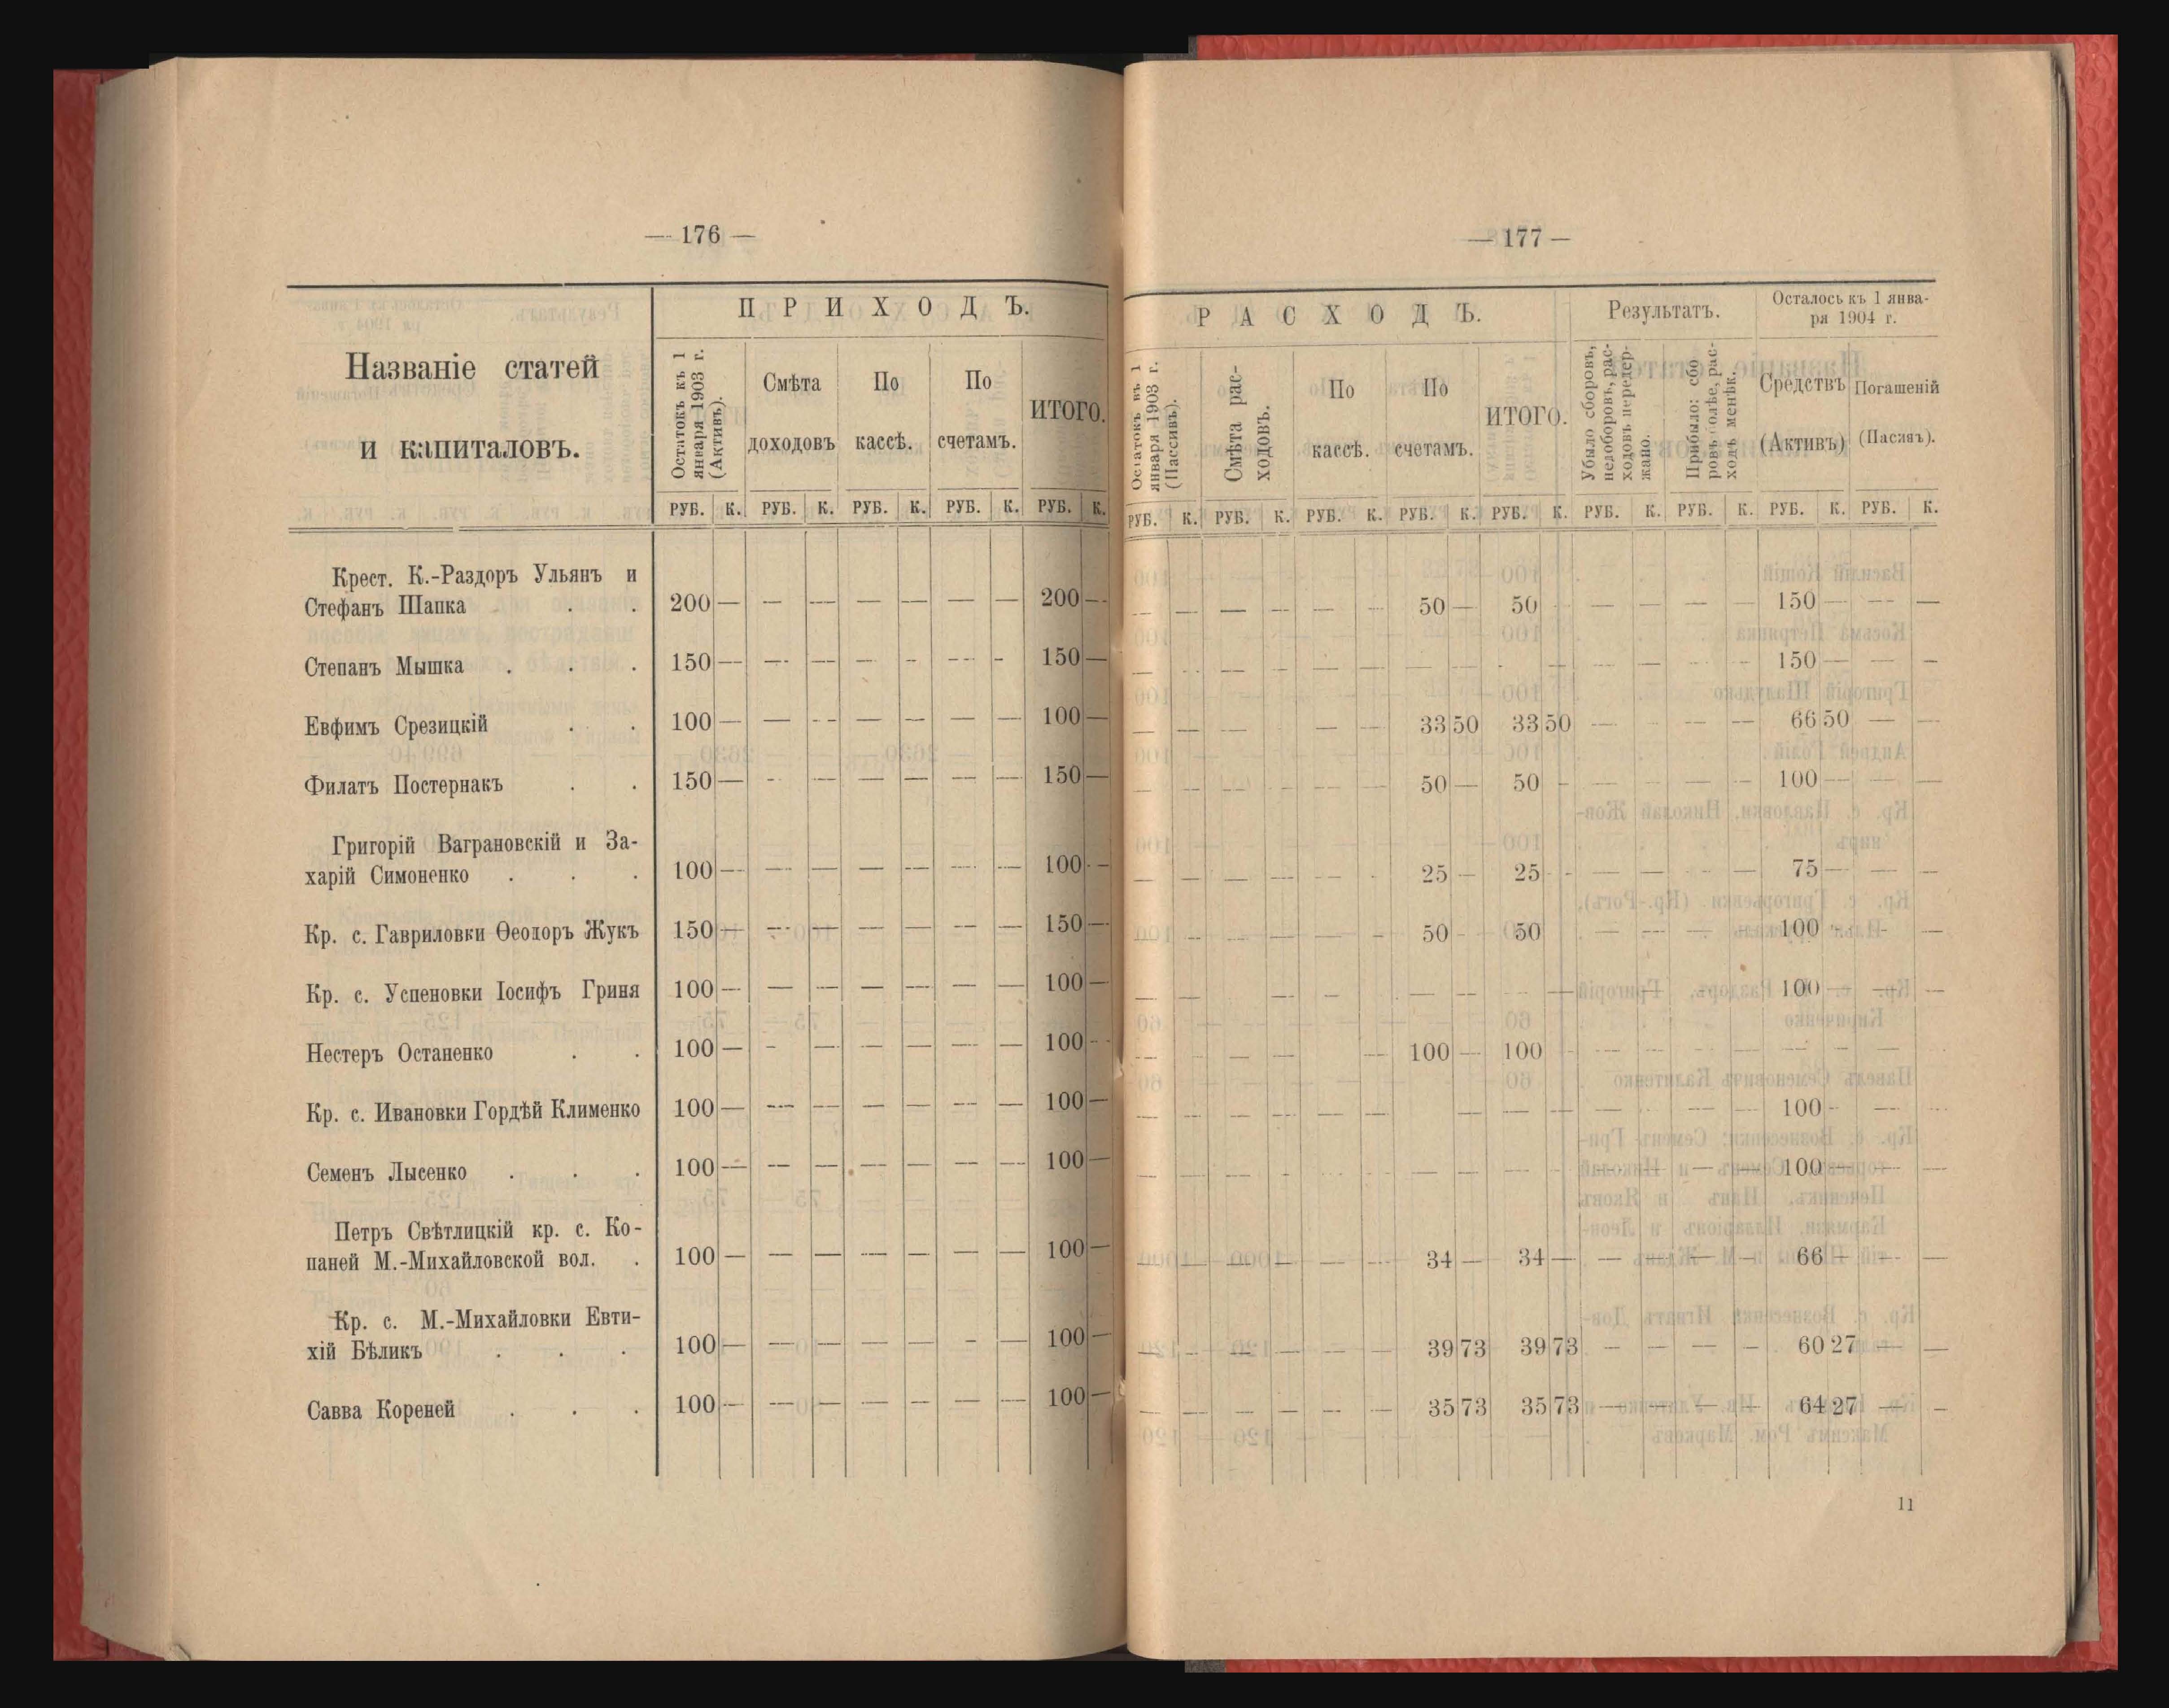 — 176 —
Названіе статей
и капиталовъ.
ПРИХОДЪ.
Остатокъ къ 1
января 1903 г.
(Активъ).
Смѣта
доходовъ
По
кассѣ.
По
счетамъ.
ИТОГО.
РУБ. К. РУБ. К. РУБ. К. РУБ. К. РУБ. К.
Крест. К.-Раздоръ Ульянъ и
Стефанъ Шапка . . 200 — — — — — — — 200 —
Степанъ Мышка . . . 150 — — — — — — — 150 —
Евфимъ Срезицкій . . 100 — — — — — — — 100 —
Филатъ Постернакъ . . 150 — — — — — — — 150 —
Григорій Ваграновскій и За-
харій Симоненко . . . 100 — — — — — — — 100 —
Кр. с. Гавриловки Ѳеодоръ Жукъ 150 — — — — — — — 150 —
Кр. с. Успеновки Іосифъ Гриня 100 — — — — — — — 100 —
Нестеръ Остапенко . . 100 — — — — — — — 100 —
Кр. с. Ивановки Гордѣй Клименко 100 — — — — — — — 100 —
Семенъ Лысенко . . . 100 — — — — — — — 100 —
Петръ Свѣтлицкій кр. с. Ко-
паней М.-Михайловской вол. . 100 — — — — — — — 100 —
Кр. с. М.-Михайловки Евти-
хій Бѣликъ . . . 100 — — — — — — — 100 —
Савва Кореней . . . 100 — — — — — — — 100 —
— 177 —
РАСХОДЪ.
Результатъ.
Осталось къ 1 янва-
ря 1904 г.
Остатокъ къ 1
января 1903 г.
(Пассивъ).
Смѣта рас-
ходовъ.
По
кассѣ.
По
счетамъ.
ИТОГО.
Убыло сборовъ,
недоборовъ, рас-
ходовъ передер-
жано.
Прибыло: сбо
ровъ болѣе, рас-
ходъ менѣк.
Средствъ
(Активъ)
Погашеній
(Пасивъ).
РУБ. К. РУБ. К. РУБ. К. РУБ. К. РУБ. К. РУБ. К. РУБ. К. РУБ. К. РУБ. К.
— — — — — — 50 — 50 — — — — 150 — — —
— — — — — — — — — — — — — 150 — — —
— — — — — 33 50 33 50 — — — 66 50 — —
— — — — — — 50 — 50 — — — — — 100 — — —
— — — — — — 25 — 25 — — — — — 75 — — —
— — — — — — 50 — 50 — — — 100 — — —
— — — — — — — — — — — 100 — — —
— — — — 100 — 100 — — — — — — — — —
— — — — — — — — — — — — — 100 — — —
— — — — — — — — — — — — — 100 — — —
— — — — — — 34 — 34 — — — — — 66 — — —
— — — — — — 39 73 39 73 — — — — 60 27 — —
— — — — — — 35 73 35 73 — — — — 64 27 — —
11